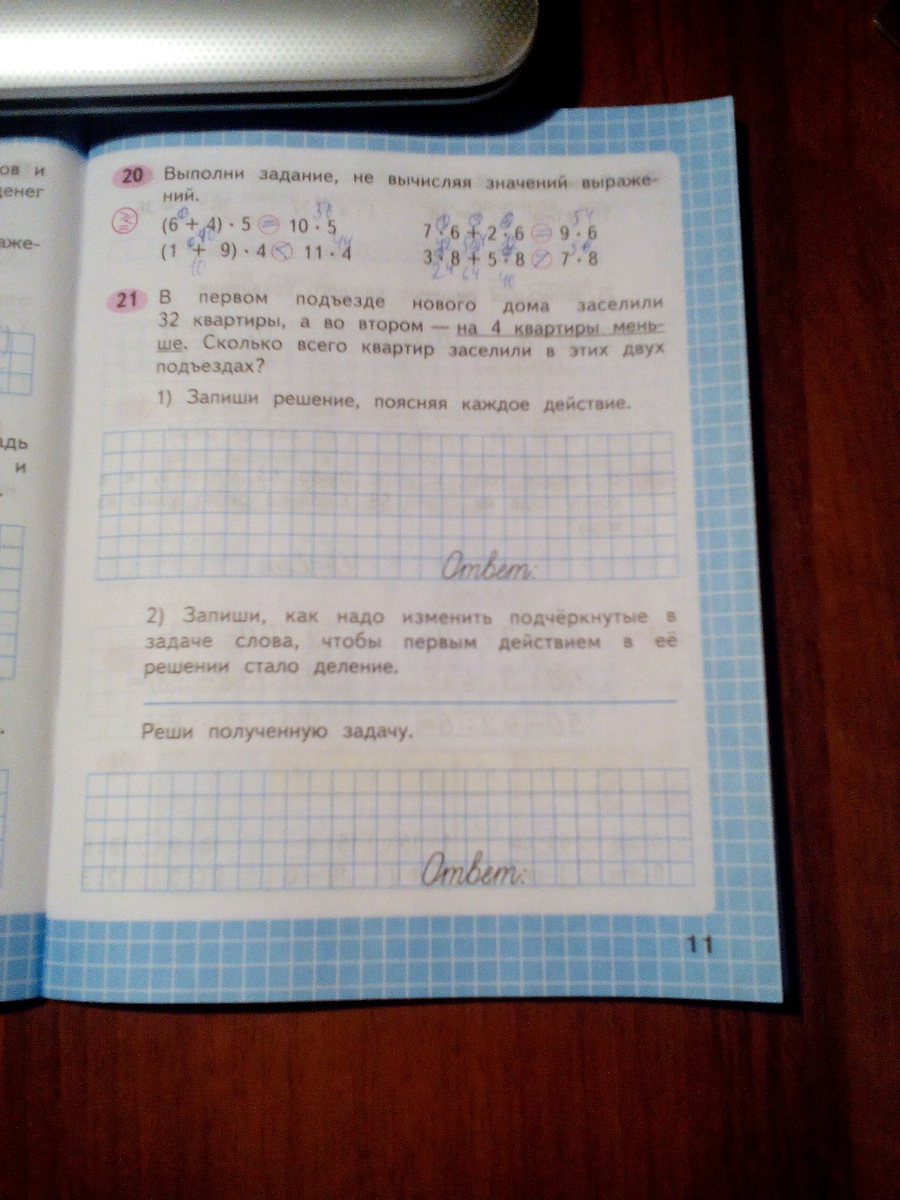 ов и
денег
аже-
адь
и
20 Выполни задание, не вычисляя значений выраже-
ний.
(6 + 4) · 5 = 10 · 5
7 · 6 + 2 · 6 = 9 · 6
(1 + 9) · 4 < 11 · 4
3 · 8 + 5 · 8 > 7 · 8
21 В первом подъезде нового дома заселили
32 квартиры, а во втором — на 4 квартиры мень-
ше. Сколько всего квартир заселили в этих двух
подъездах?
1) Запиши решение, поясняя каждое действие.
Ответ:
2) Запиши, как надо изменить подчёркнутые в
задаче слова, чтобы первым действием в её
решении стало деление.
Реши полученную задачу.
Ответ:
11